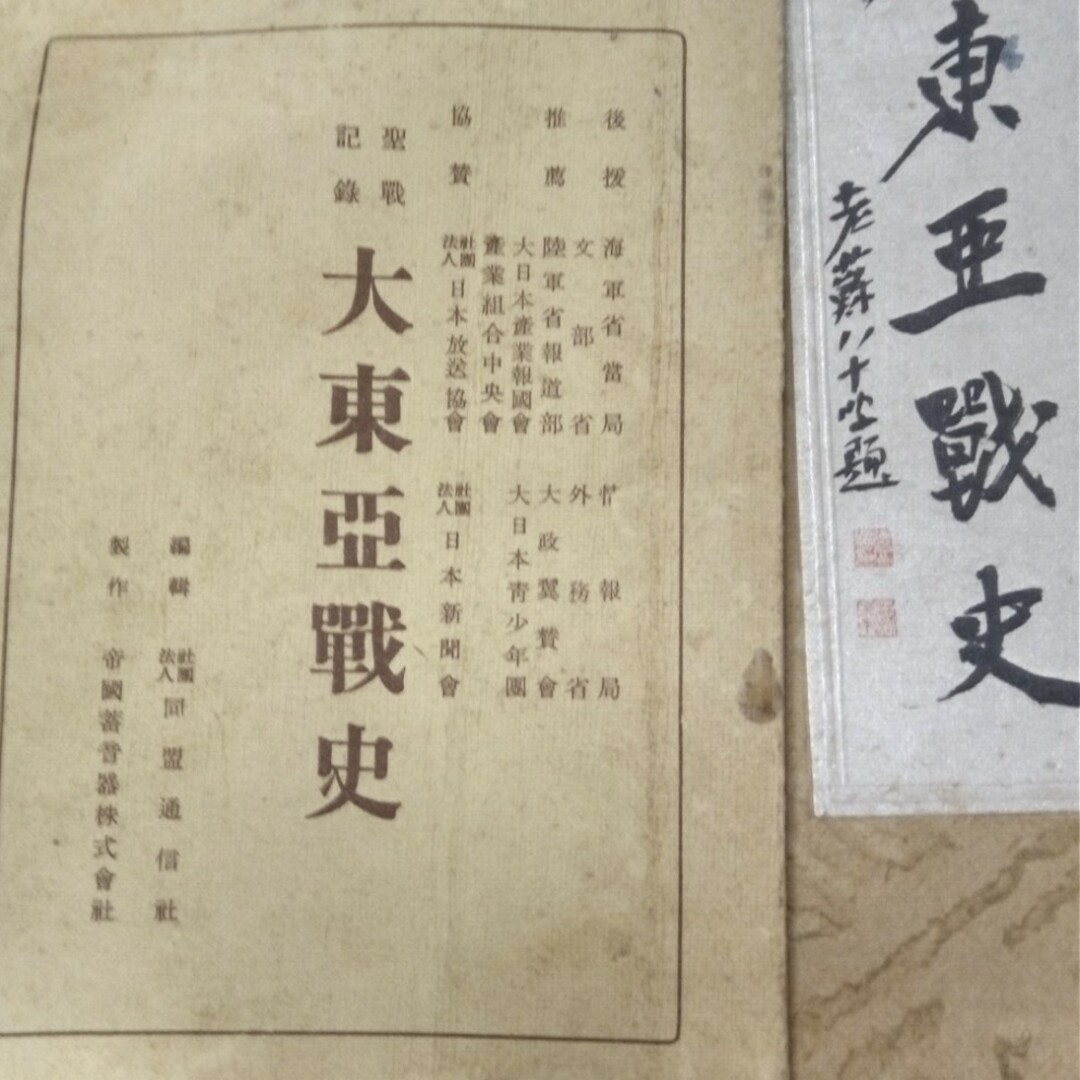 東亜戰史
老蘇八十叟題
後援 海軍省當局 情報局
文部省 外務省
推薦 陸軍省報道部 大政翼賛會
大日本產業報國會 大日本靑少年團
產業組合中央會
協賛 社團法人 日本放送協會 社團法人 日本新聞會
聖戰
記錄
大東亞戰史
編輯 社團法人 同盟通信社
製作 帝國蓄音器株式會社